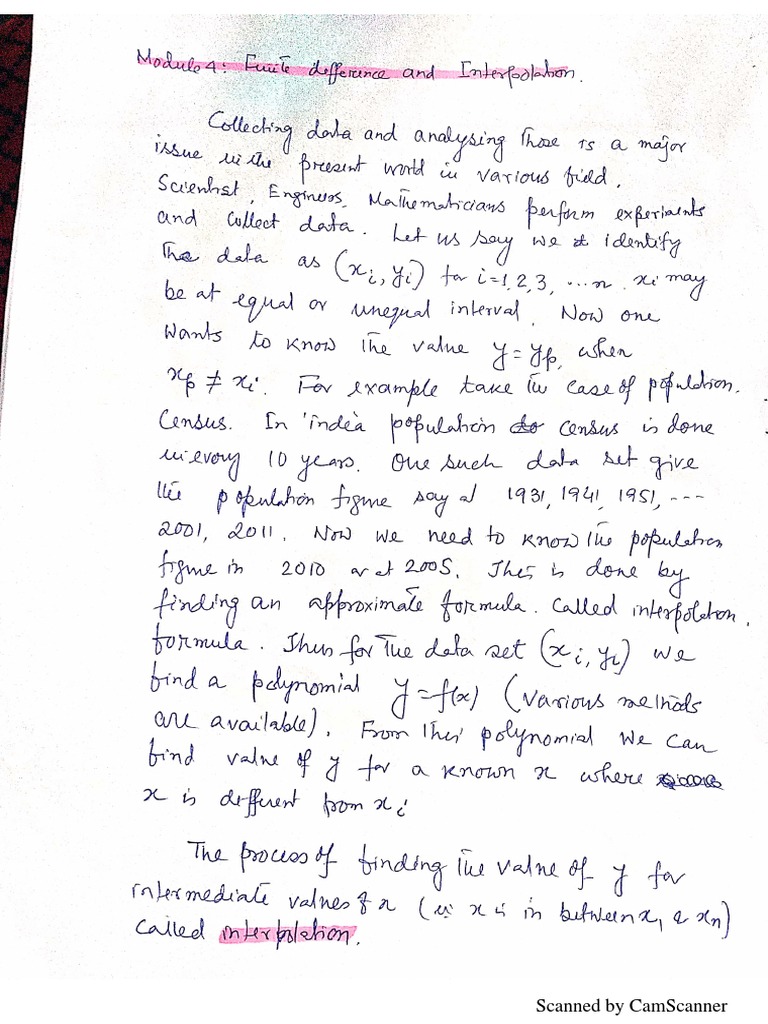 Module 4: Finite difference and Interpolation.
Collecting data and analysing those is a major
issue in the present world in various field.
Scientist, Engineers, Mathematicians perform experiments
and collect data. Let us say we identify
The data as (xi, yi) for i=1,2,3, ...n. xi may
be at equal or unequal interval. Now one
wants to know the value y = yp, when
xp ≠ xi. For example take the case of population.
Census. In india population census is done
in every 10 years. One such data set give
the population figure say at 1931, 1941, 1951, ---
2001, 2011. Now we need to know the population
figure in 2010 or at 2005. This is done by
finding an approximate formula. Called interpolation.
formula. Thus for the data set (xi, yi) we
find a polynomial y = f(x) (various methods
are available). From this polynomial we can
find value of y for a known x where
x is different from xi
The process of finding the value of y for
intermediate values of x (ie x is in between x1 & xn)
called interpolation.
Scanned by CamScanner